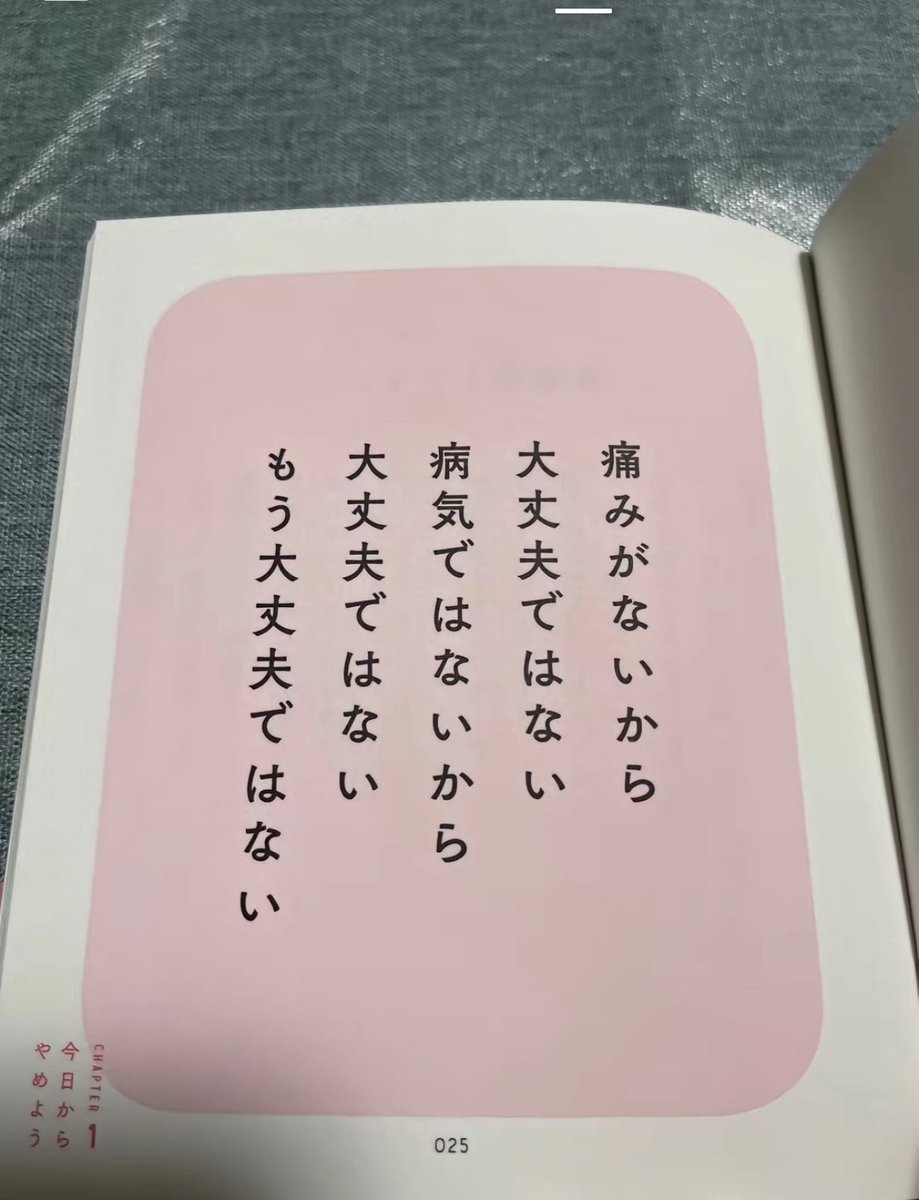 痛みがないから
大丈夫ではない
病気ではないから
大丈夫ではない
もう大丈夫ではない
CHAPTER 1
今日から
やめよう
025